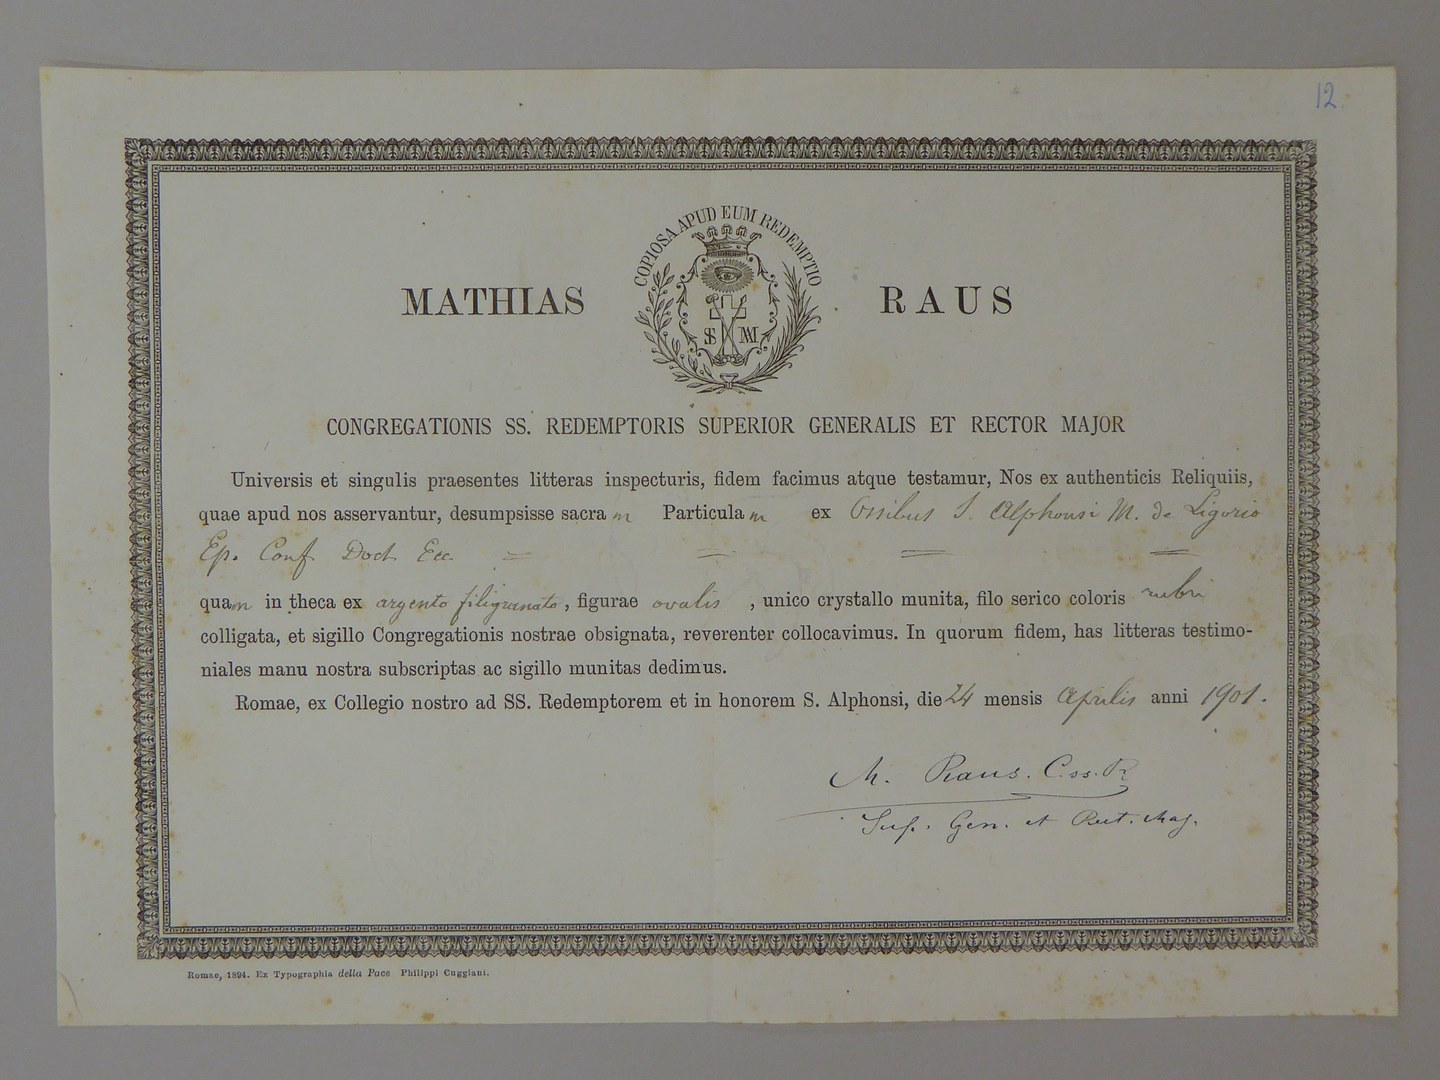 12.
COPIOSA APUD EUM REDEMPTIO
MATHIAS RAUS
CONGREGATIONIS SS. REDEMPTORIS SUPERIOR GENERALIS ET RECTOR MAJOR
Universis et singulis praesentes litteras inspecturis, fidem facimus atque testamur, Nos ex authenticis Reliquiis,
quae apud nos asservantur, desumpsisse sacram Particulam ex Ossibus S. Alphonsi M. de Ligorio
Ep. Conf. Doct. Ecc. = = = =
quam in theca ex argento filigranato, figurae ovalis, unico crystallo munita, filo serico coloris rubri
colligata, et sigillo Congregationis nostrae obsignata, reverenter collocavimus. In quorum fidem, has litteras testimo-
niales manu nostra subscriptas ac sigillo munitas dedimus.
Romae, ex Collegio nostro ad SS. Redemptorem et in honorem S. Alphonsi, die 24 mensis Aprilis anni 1901.
M. Raus. C.ss.R
Sup. Gen. et Rect. Maj.
Romae, 1894. Ex Typographia della Pace Philippi Cuggiani.